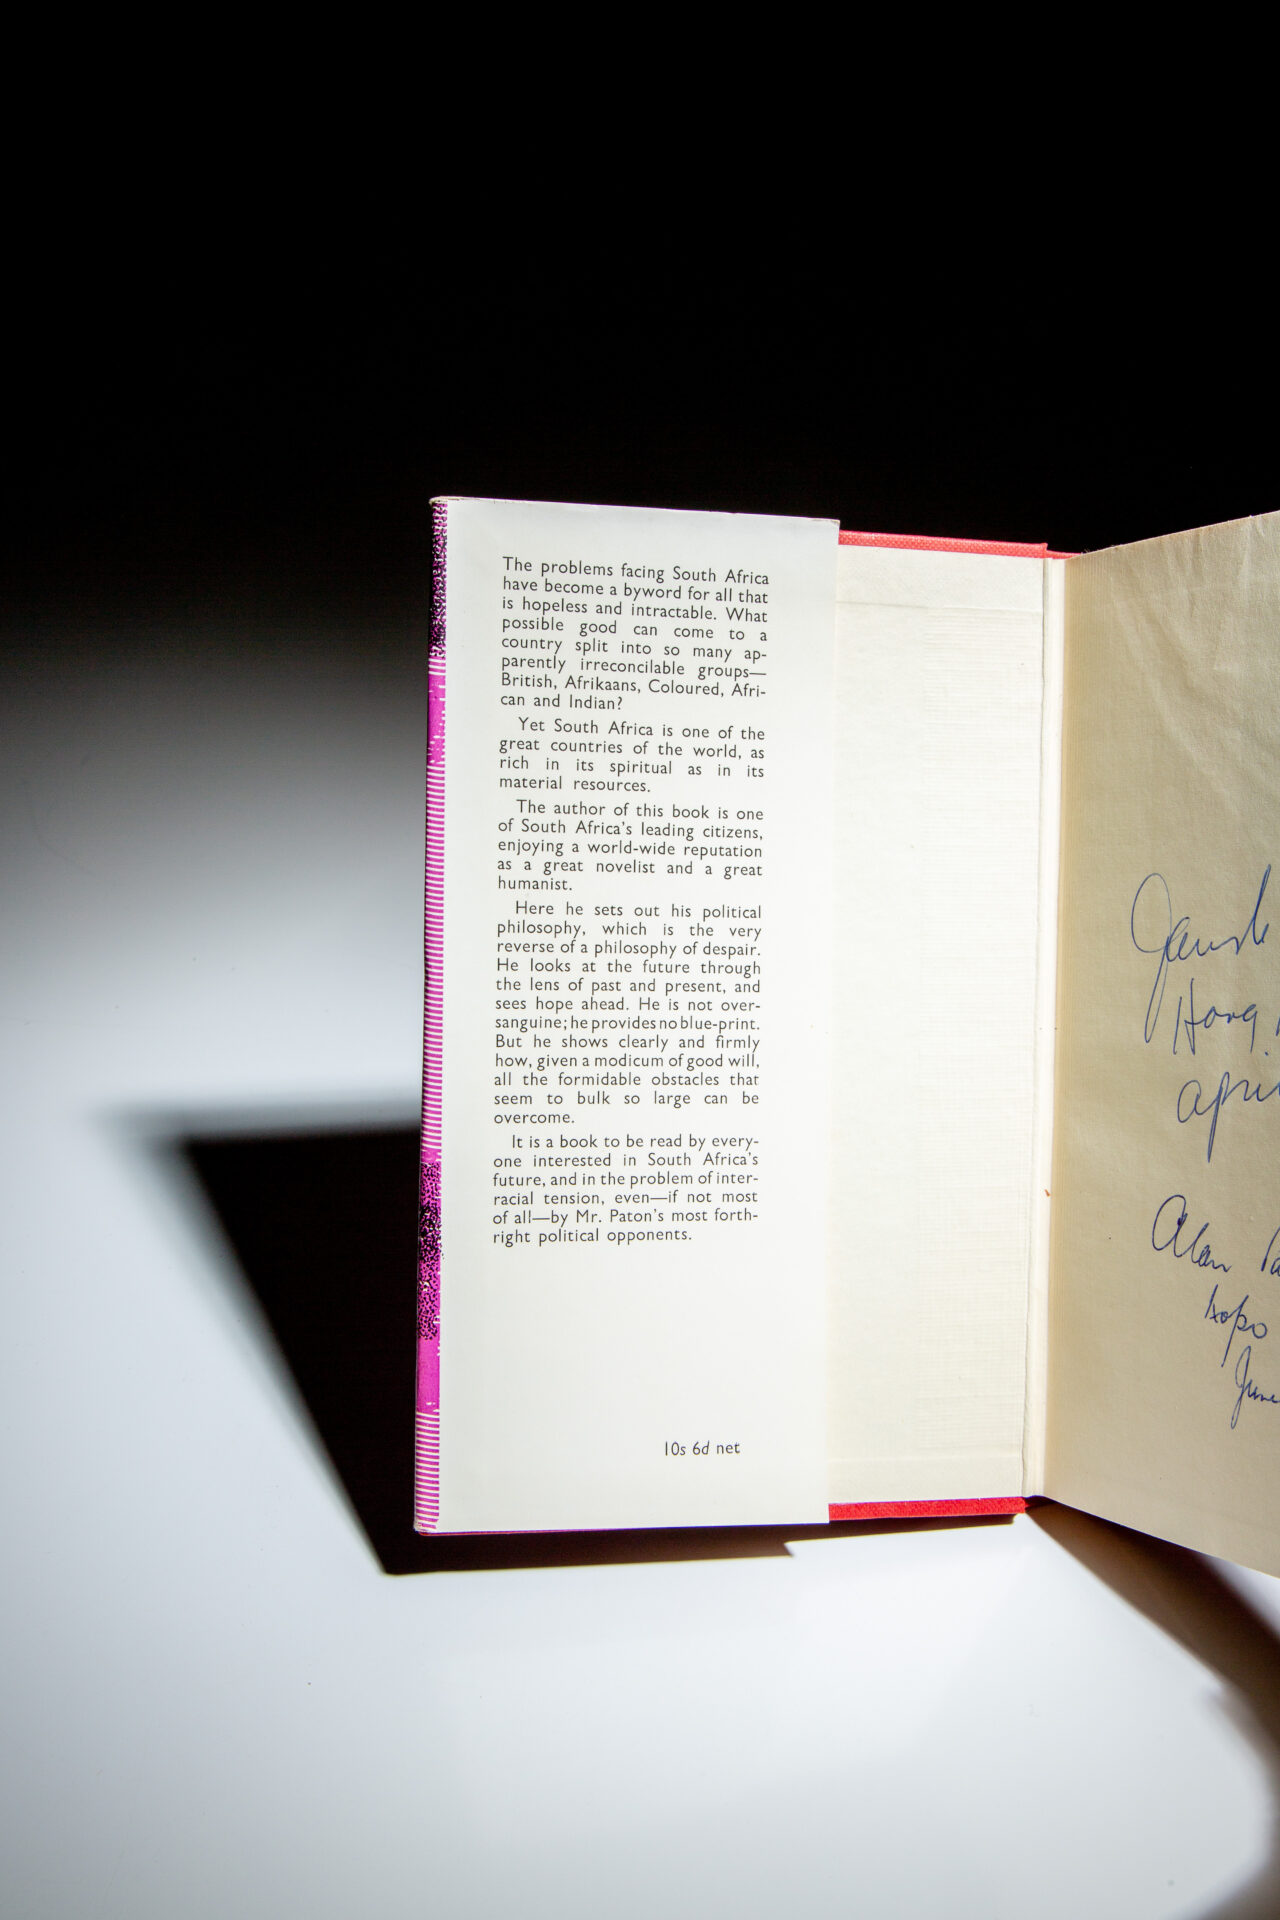 The problems facing South Africa
have become a byword for all that
is hopeless and intractable. What
possible good can come to a
country split into so many ap-
parently irreconcilable groups—
British, Afrikaans, Coloured, Afri-
can and Indian?
Yet South Africa is one of the
great countries of the world, as
rich in its spiritual as in its
material resources.
The author of this book is one
of South Africa's leading citizens,
enjoying a world-wide reputation
as a great novelist and a great
humanist.
Here he sets out his political
philosophy, which is the very
reverse of a philosophy of despair.
He looks at the future through
the lens of past and present, and
sees hope ahead. He is not over-
sanguine; he provides no blue-print.
But he shows clearly and firmly
how, given a modicum of good will,
all the formidable obstacles that
seem to bulk so large can be
overcome.
It is a book to be read by every-
one interested in South Africa's
future, and in the problem of inter-
racial tension, even—if not most
of all—by Mr. Paton's most forth-
right political opponents.
10s 6d net
Hong
Alan
June